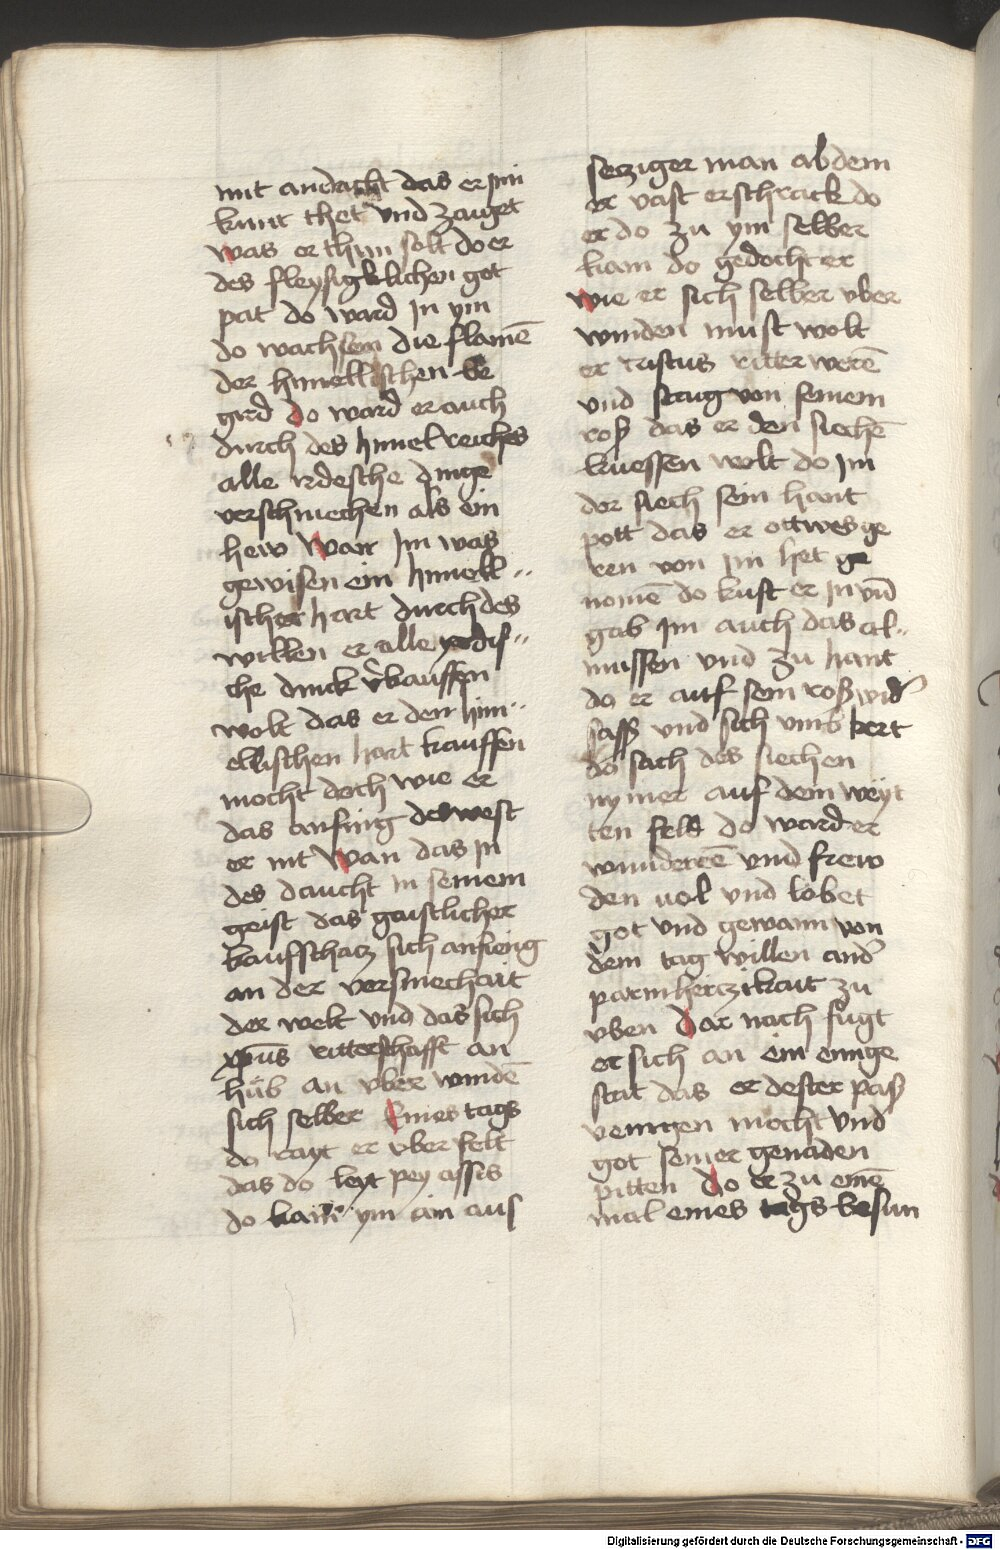 mit andacht das er jm
kunt thet vnd zaiget
was er thun solt do er
des fleysigklichen got
pat do ward in ym
do wachsen die flamē
der himellischen be
gird do ward er auch
durch des himelreiches
alle irdesche dinge
verschmechen als ein
hew Wan im was
gewisen ein himell
ischer hort durch des
willen er alle yrdis
che dinck v̄kauffen
wolt das er den him
ellischen hort kauffen
mocht doch wie er
das anfing des west
er nit Wan das in
des daucht in seinem
geist das gaistlicher
kaufschatz sich anfieng
an der versmechait
der welt vnd das sich
xp̄us ritterschafft an
hub an vber windē
sich selber Eines tags
do rayt er vber felt
das do leyt pey assis
do kam ym ain aus
setziger man ab dem
er vast erschrack do
er do zu ym selber
kam do gedocht er
wie er sich selber vber
winden must wolt
er cristus ritter werē
vnd staig von seinem
roß das er den siechē
kuessen wolt do im
der siech sein hant
pott das er ettwes ge
ren von im het ge
nomē do kust er in vn̄
gab im auch das al
mussen vnd zu hant
do er auf sein roß wid̄
saß vnd sich vmb kert
do sach des siechen
nymer auf dem weyt
ten feld do ward er
wunderēē vnd frew
den vol vnd lobet
got vnd gewann von
dem tag willen and̄
parmherczikait zu
vben Dar nach fugt
er sich an ein einige
stat das er dester paß
venigen mocht vnd
got seiner genaden
pitten do er zu einē
mal eines tags besun
Digitalisierung gefördert durch die Deutsche Forschungsgemeinschaft - DFG